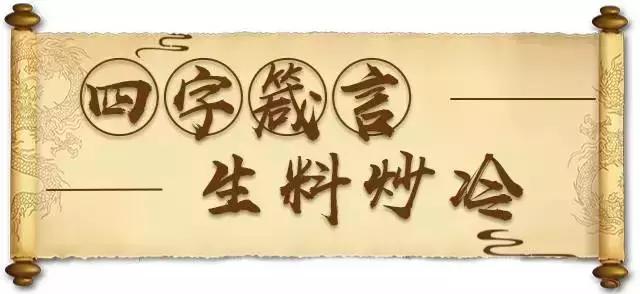 四字箴言
生料炒冷